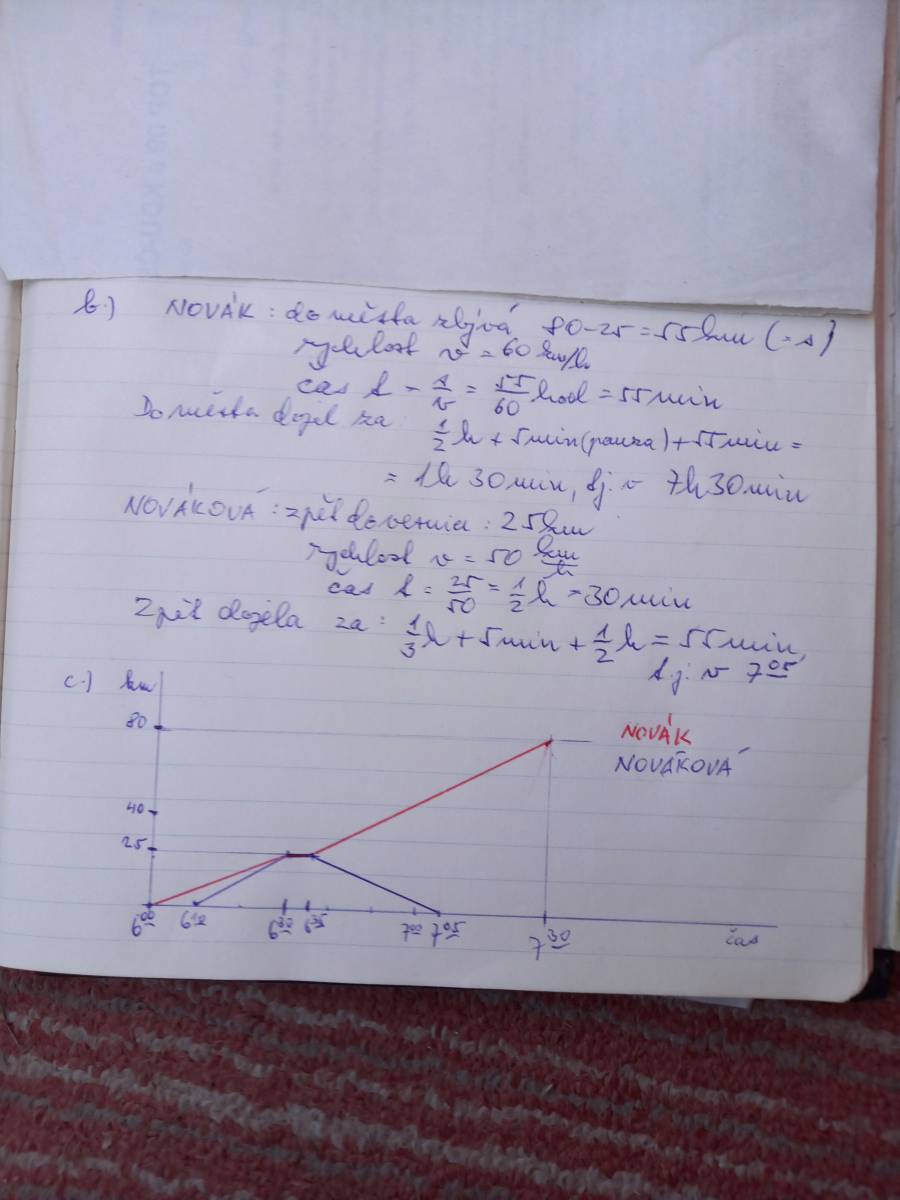 b.) NOVÁK : do města zbývá 80-25 = 55km (=s)
rychlost v = 60 km/h
čas t = s/v = 55/60 hod = 55 min
Do města dojel za: 1/2 h + 5 min (pauza) + 55 min =
= 1h 30 min, tj. v 7h 30 min
NOVÁKOVÁ : zpět do vesnice : 25km
rychlost v = 50 km/h
čas t = 25/50 = 1/2 h = 30 min
Zpět dojela za: 1/3 h + 5 min + 1/2 h = 55 min,
t.j. v 7 05
c.) km
80
NOVÁK
NOVÁKOVÁ
40
25
6 00 6 10 6 30 6 35 7 00 7 05 7 30 čas